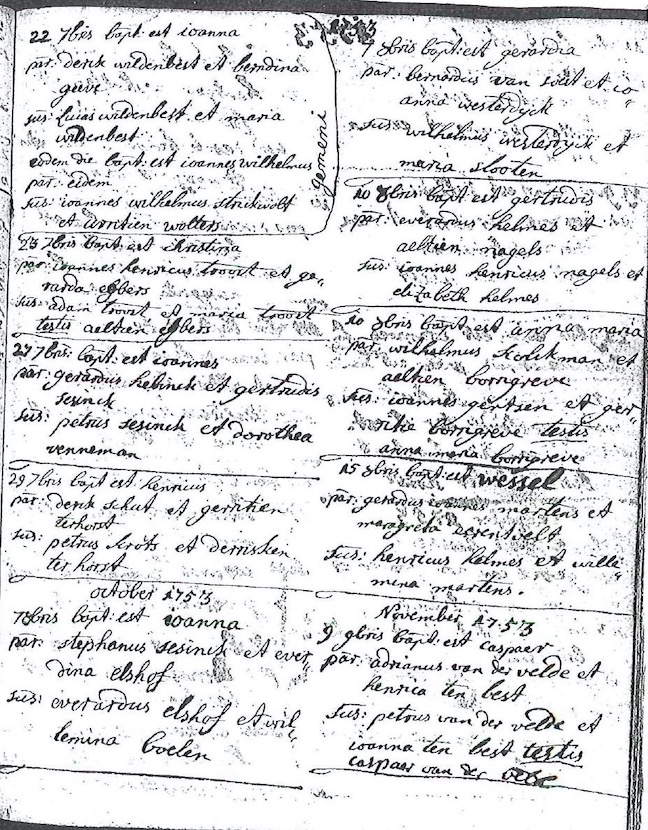 22 7bris bapt est ioanna
par: derik wildenbest et berndina
geuve
sus: lucas wildenbest et maria
wildenbest
eodem die bapt: est ioannes wilhelmus
par: eidem
sus: ioannes wilhelmus
et wolters
gemeni
23 7bris bapt est christina
par: ioannes henricus troost et ge„
rarda eßbers
sus: adam troost et maria troost
testis aeltien eßbers
27 7bris: bapt: est ioannes
par: gerardus hebinck et gertrudis
sesinck
sus: petrus sesinck et dorothea
venneman
29 7bris bapt est henricus
par: derik schut et gerritien
terhorst
sus: petrus et derrisken
ter horst
october 1753
7 8bris bapt: est ioanna
par: stephanus sesinck et ever„
dina elshof
sus: everardus elshof et wil„
lemina boelen
1753
7 8bris bapt: est gerardia
par: bernardus van soest et io„
anna westerdyck
sus: wilhelmus westerdyck et
maria slooten
10 8bris bapt est gertrudis
par: everardus helmes et
aeltien nagels
sus: ioannes henricus nagels et
elizabeth helmes
10 8bris bapt est anna maria
par: wilhelmus kolckman et
aeltien borngreve
sus: ioannes gertsen et ger„
borngreve testis
anna maria borngreve
15 8bris bapt: est wessel
par: gerardus ioannes martens et
maragreta
sus: henricus helmes et wille„
mina martens.
November 1753
9 9bris bapt: est caspaer
par: adrianus van der velde et
henrica ten best
sus: petrus van der velde et
ioanna ten best testis
caspaer van der velde